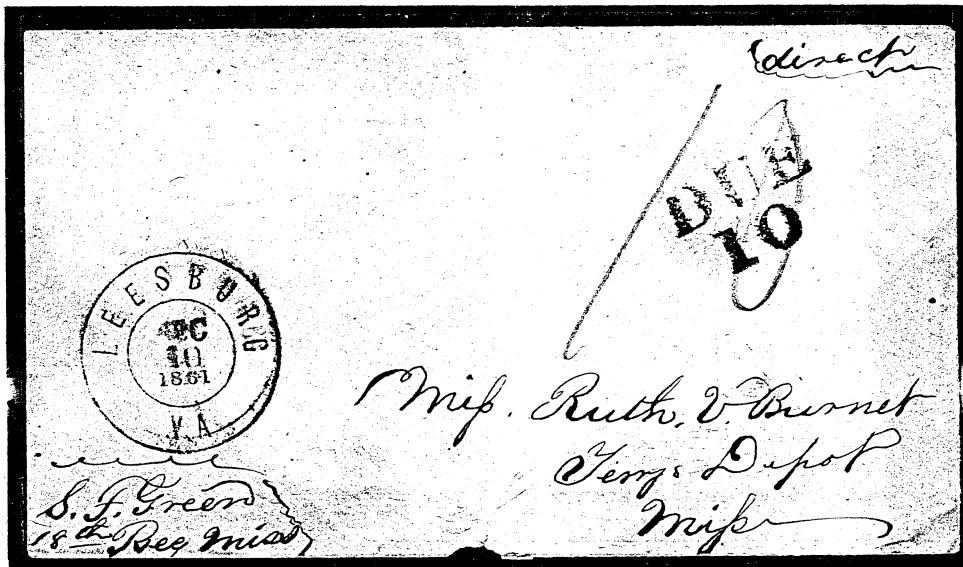 direct
DUE
10
10
LEESBURG
DEC
10
1861
VA
Miſs. Ruth. V. Burnet
Terrys Depot
Miſs
S. F. Green
18th Reg Miss